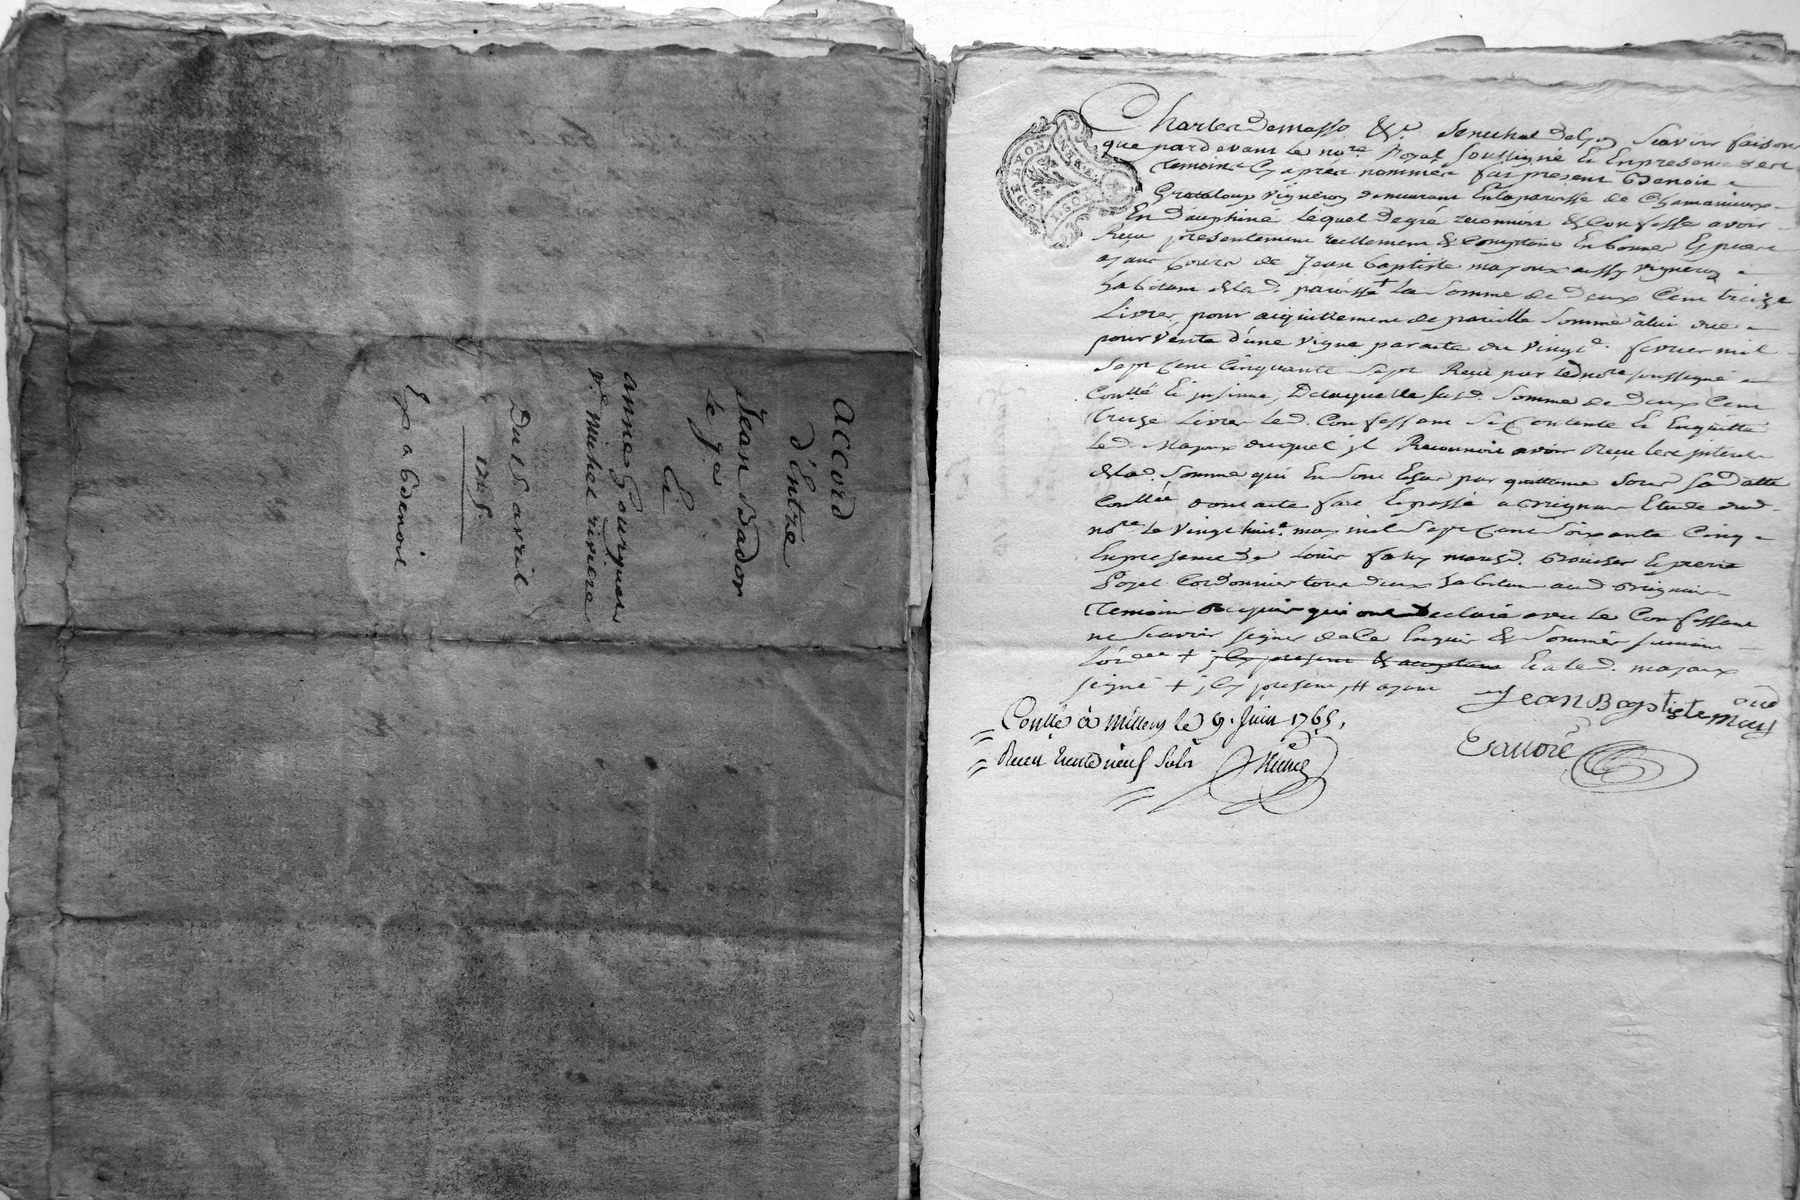 accord
d'Entre
Jean Badon
le je
Et
anne Gourguet
ve michel riviere
Du 15 avril
1765
Exp a Benoit
GDE LYON
Charles Demasso &c. Senechal de Lyon Scavoir faisons
que pardevant le nore Royal soussigné et Enpresence des
temoins Cy après nommés fut present Benoit
Grataloup vigneron demeurant En la paroisse de Chamanieux
En dauphiné Lequel de gré reconnoit & Confesse avoir
Reçu presentement reellement & Comptant En bonnes Especes
ayant Cours de Jean baptiste majoux aussy vigneron
habitant de lad. paroisse + La Somme de deux Cent treize
Livres pour acquittement de pareille Somme a lui due
pour vente d'une vigne par acte du vingt fevrier mil
Sept Cent Cinquante Sept Reçu par led nore soussigné
Conllé Et insinué, De laquelle susd. Somme de deux Cent
treize Livres Led. Confessant Se Contente Et En quitte
Led. Majoux duquel jl Reconnoit avoir Reçu les interets
de lad. Somme qui En sont Echus par quittance Sous Sa datte
Conllée dont acte fait Et passé a Grignieu Etude dud
nore Le vingt huit may mil Sept Cent Soixante Cinq
En presence de Louis fary march. Et pierre
Cordonnier tous deux habitans aud Grignieu
temoins Requis qui ont Declaré avec Le Confessant
ne Scavoir signer de Ce Enquis & Sommés suivant
Lordce + jcy present & acceptant Et a led. majoux
signé + jcy present ayant
Jean Baptiste
Conllé à Millery le 9. Juin 1765.
Reçu trente neuf sols